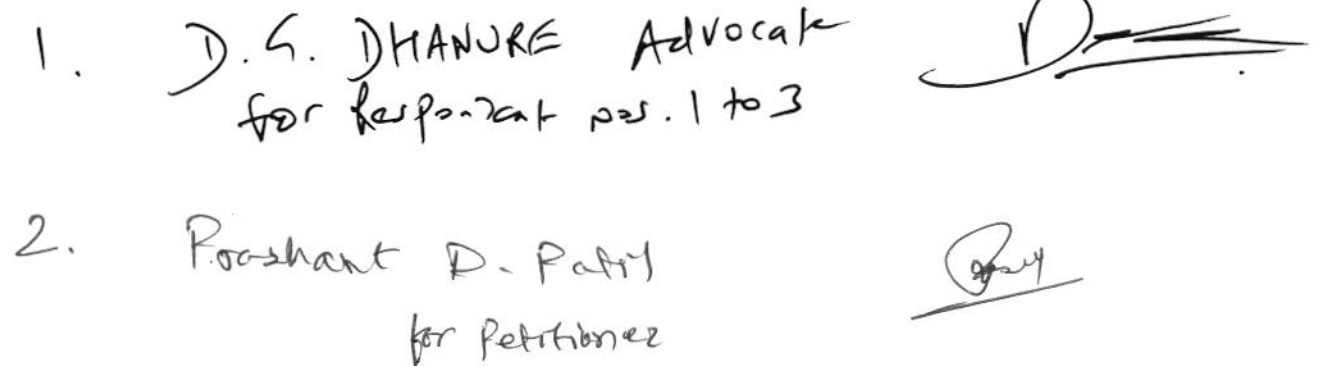 1. D.G. DHANURE Advocate
for Respondent nos. 1 to 3
2. Prashant D. Patil
for Petitioner